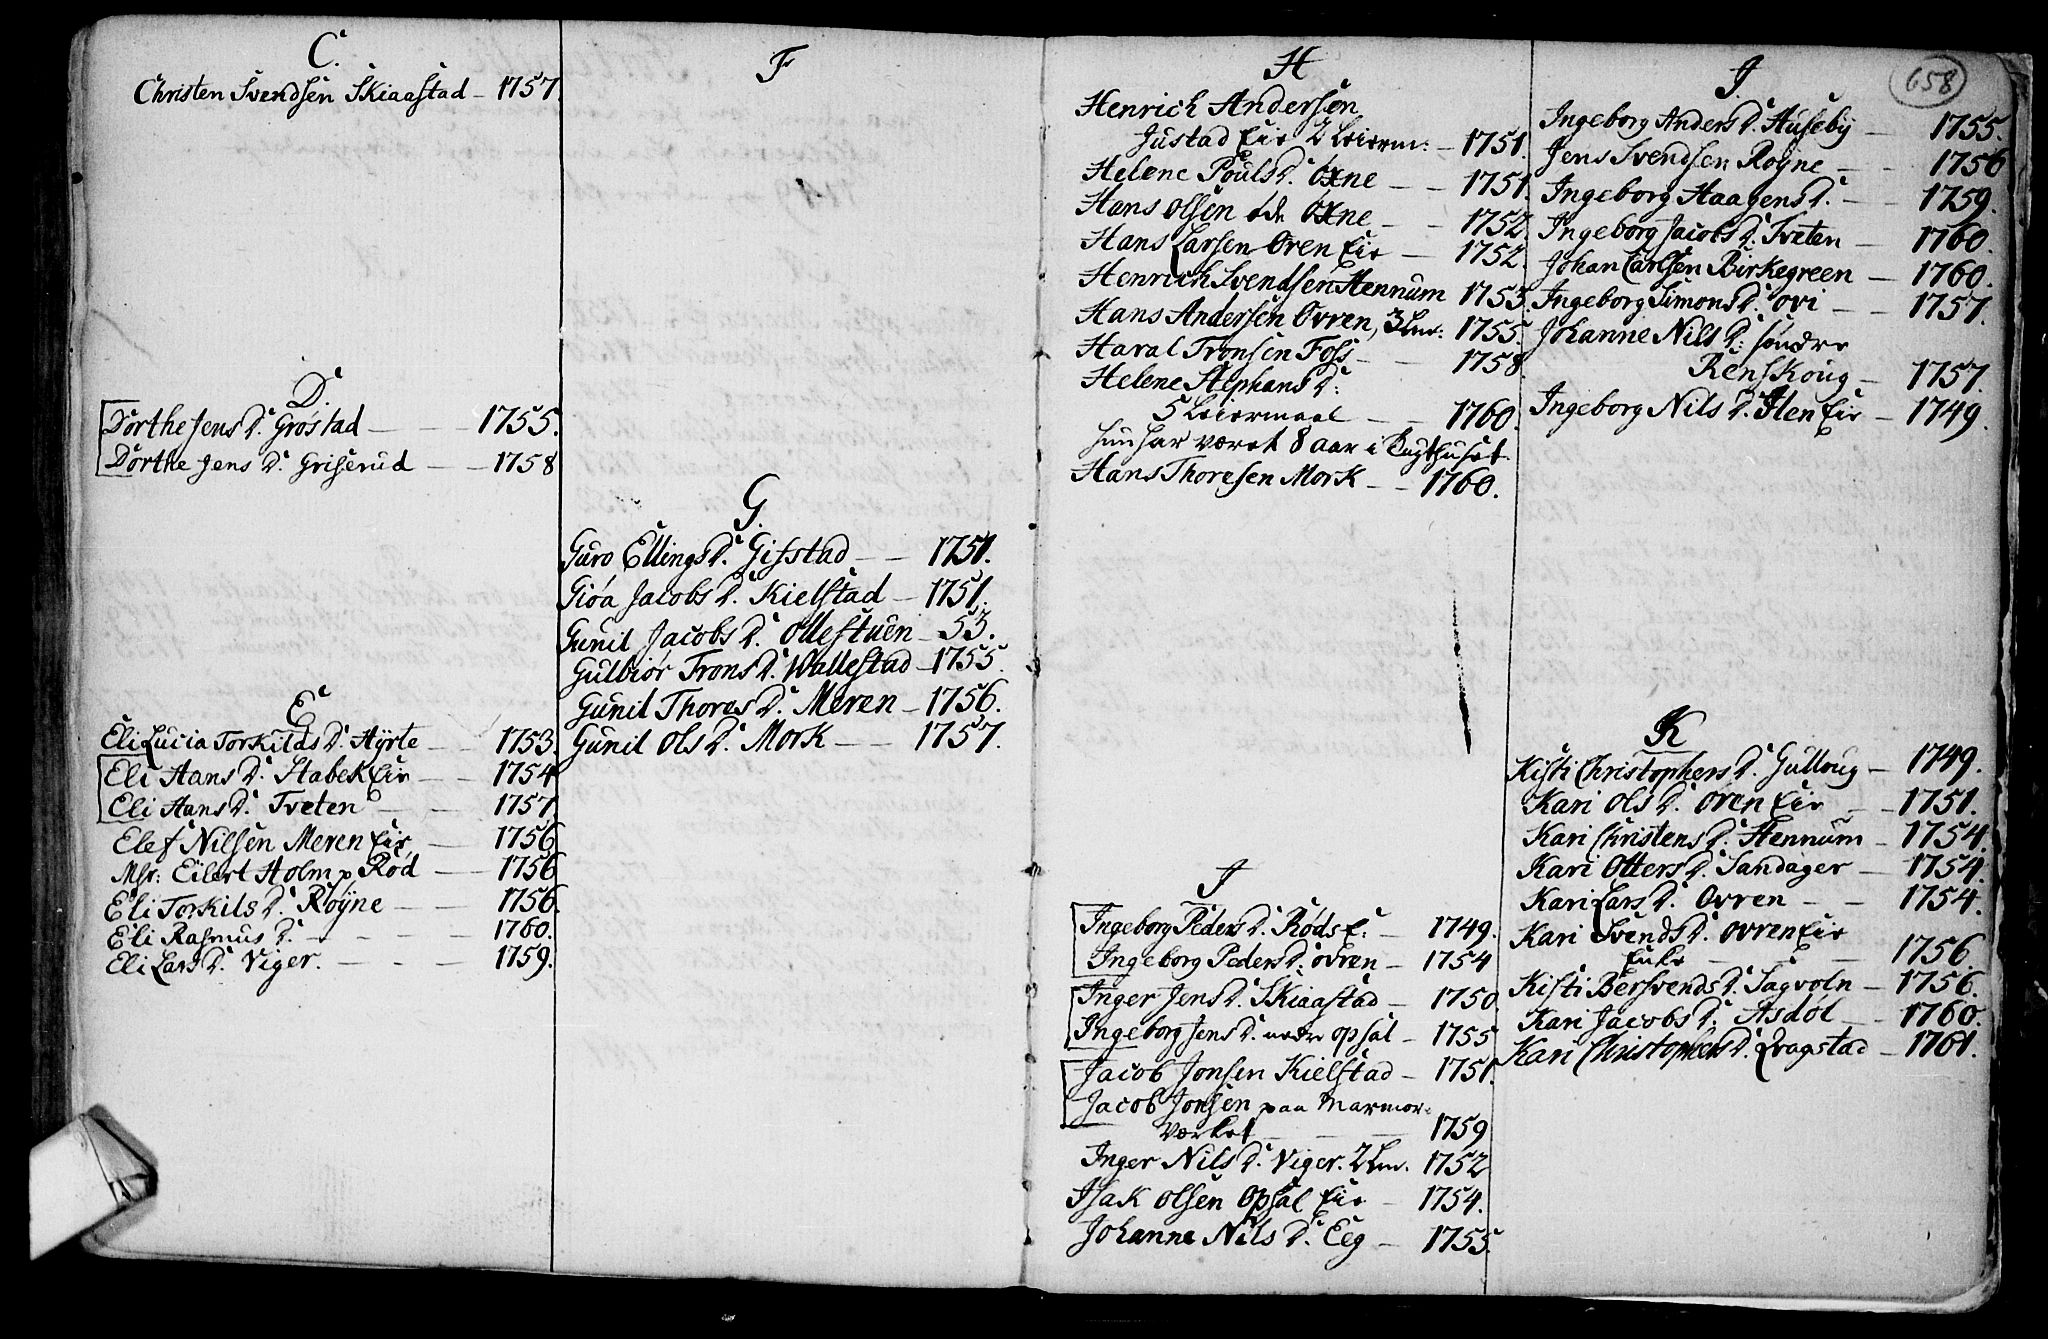 C.
Christen Svendsen Skiaastad - 1757
D.
Dorthe Jens D. Grøstad - 1755.
Dorthe Jens D. Griserud - 1758
E
Eli Lucia Torkilds D. Hÿrte - 1753.
Eli Hans D. Stabek Eie - 1754
Eli Hans D. Tveten - 1757
Elef Nilsen Meren Eie - 1756
Msr: Eilert Holm p Rød - 1756
Eli Torkils D. Røÿne - 1756.
Eli Rasmus D. - 1760.
Eli Lars D. Viger. - 1759.
F
G.
Guro Ellings D. Gifstad - 1751.
Giøa Jacobs D. Kielstad - 1751.
Gunil Jacobs D. Ollestuen - 53.
Gulbiør Trons D. Wallestad - 1755.
Gunil Thores D. Meren - 1756.
Gunil Ols D. Mork - 1757.
H
Henrich Andersen
Justad Eie 2 Leierm: - 1751.
Helene Pouls D. Oxne - 1751.
Hans Olsen øde Oxne - 1752.
Hans Larsen Oren Eie - 1752.
Henrich Svendsen Hennum 1753.
Hans Andersen Ovren, 3 Lm: 1755.
Haral Tronsen Foss - 1758
Helene Stephans D.
5 Leiermaal - 1760.
hun har været 8 aar i Tugthuset.
Hans Thoresen Mork - 1760.
J
Ingeborg Peders D. Røds E. - 1749.
Ingeborg Peders D. Ovren - 1754
Inger Jens D. Skiaastad - 1750
Ingeborg Jens D. nedre Opsal - 1755
Jacob Jonsen Kielstad - 1751.
Jacob Jonsen paa Marmor-
Værket - 1759
Inger Nils D. Viger. 2 Lm. 1752
Isak Olsen Opsal Eie - 1754.
Johanne Nils D. Eeg - 1755.
J.
658
Ingeborg Anders D. Huseby - 1755.
Jens Svendsen Royne - 1756
Ingeborg Haagens D. - 1759.
Ingeborg Jacobs D. Tveten - 1760.
Johan Carlsen Birkegreen - 1760.
Ingeborg Simons D. Ovi - 1757.
Johanne Nils D: søndre
Renskoug - 1757.
Ingeborg Nils D. Hlen Eie - 1749.
K
Kisti Christophers D. Gulloug - 1749.
Kari Ols D. Oren Eie - 1751.
Kari Christens D. Hennum - 1754.
Kari Otters D. Sandager - 1754.
Kari Lars D. Ovren - 1754.
Kari Svends D. Ovren Eie
Enke - 1756
Kisti Bersvends D. Sagvoln - 1756.
Kari Jacobs D. Asdøl - 1760.
Kari Christophers D. Qvagstad - 1761.